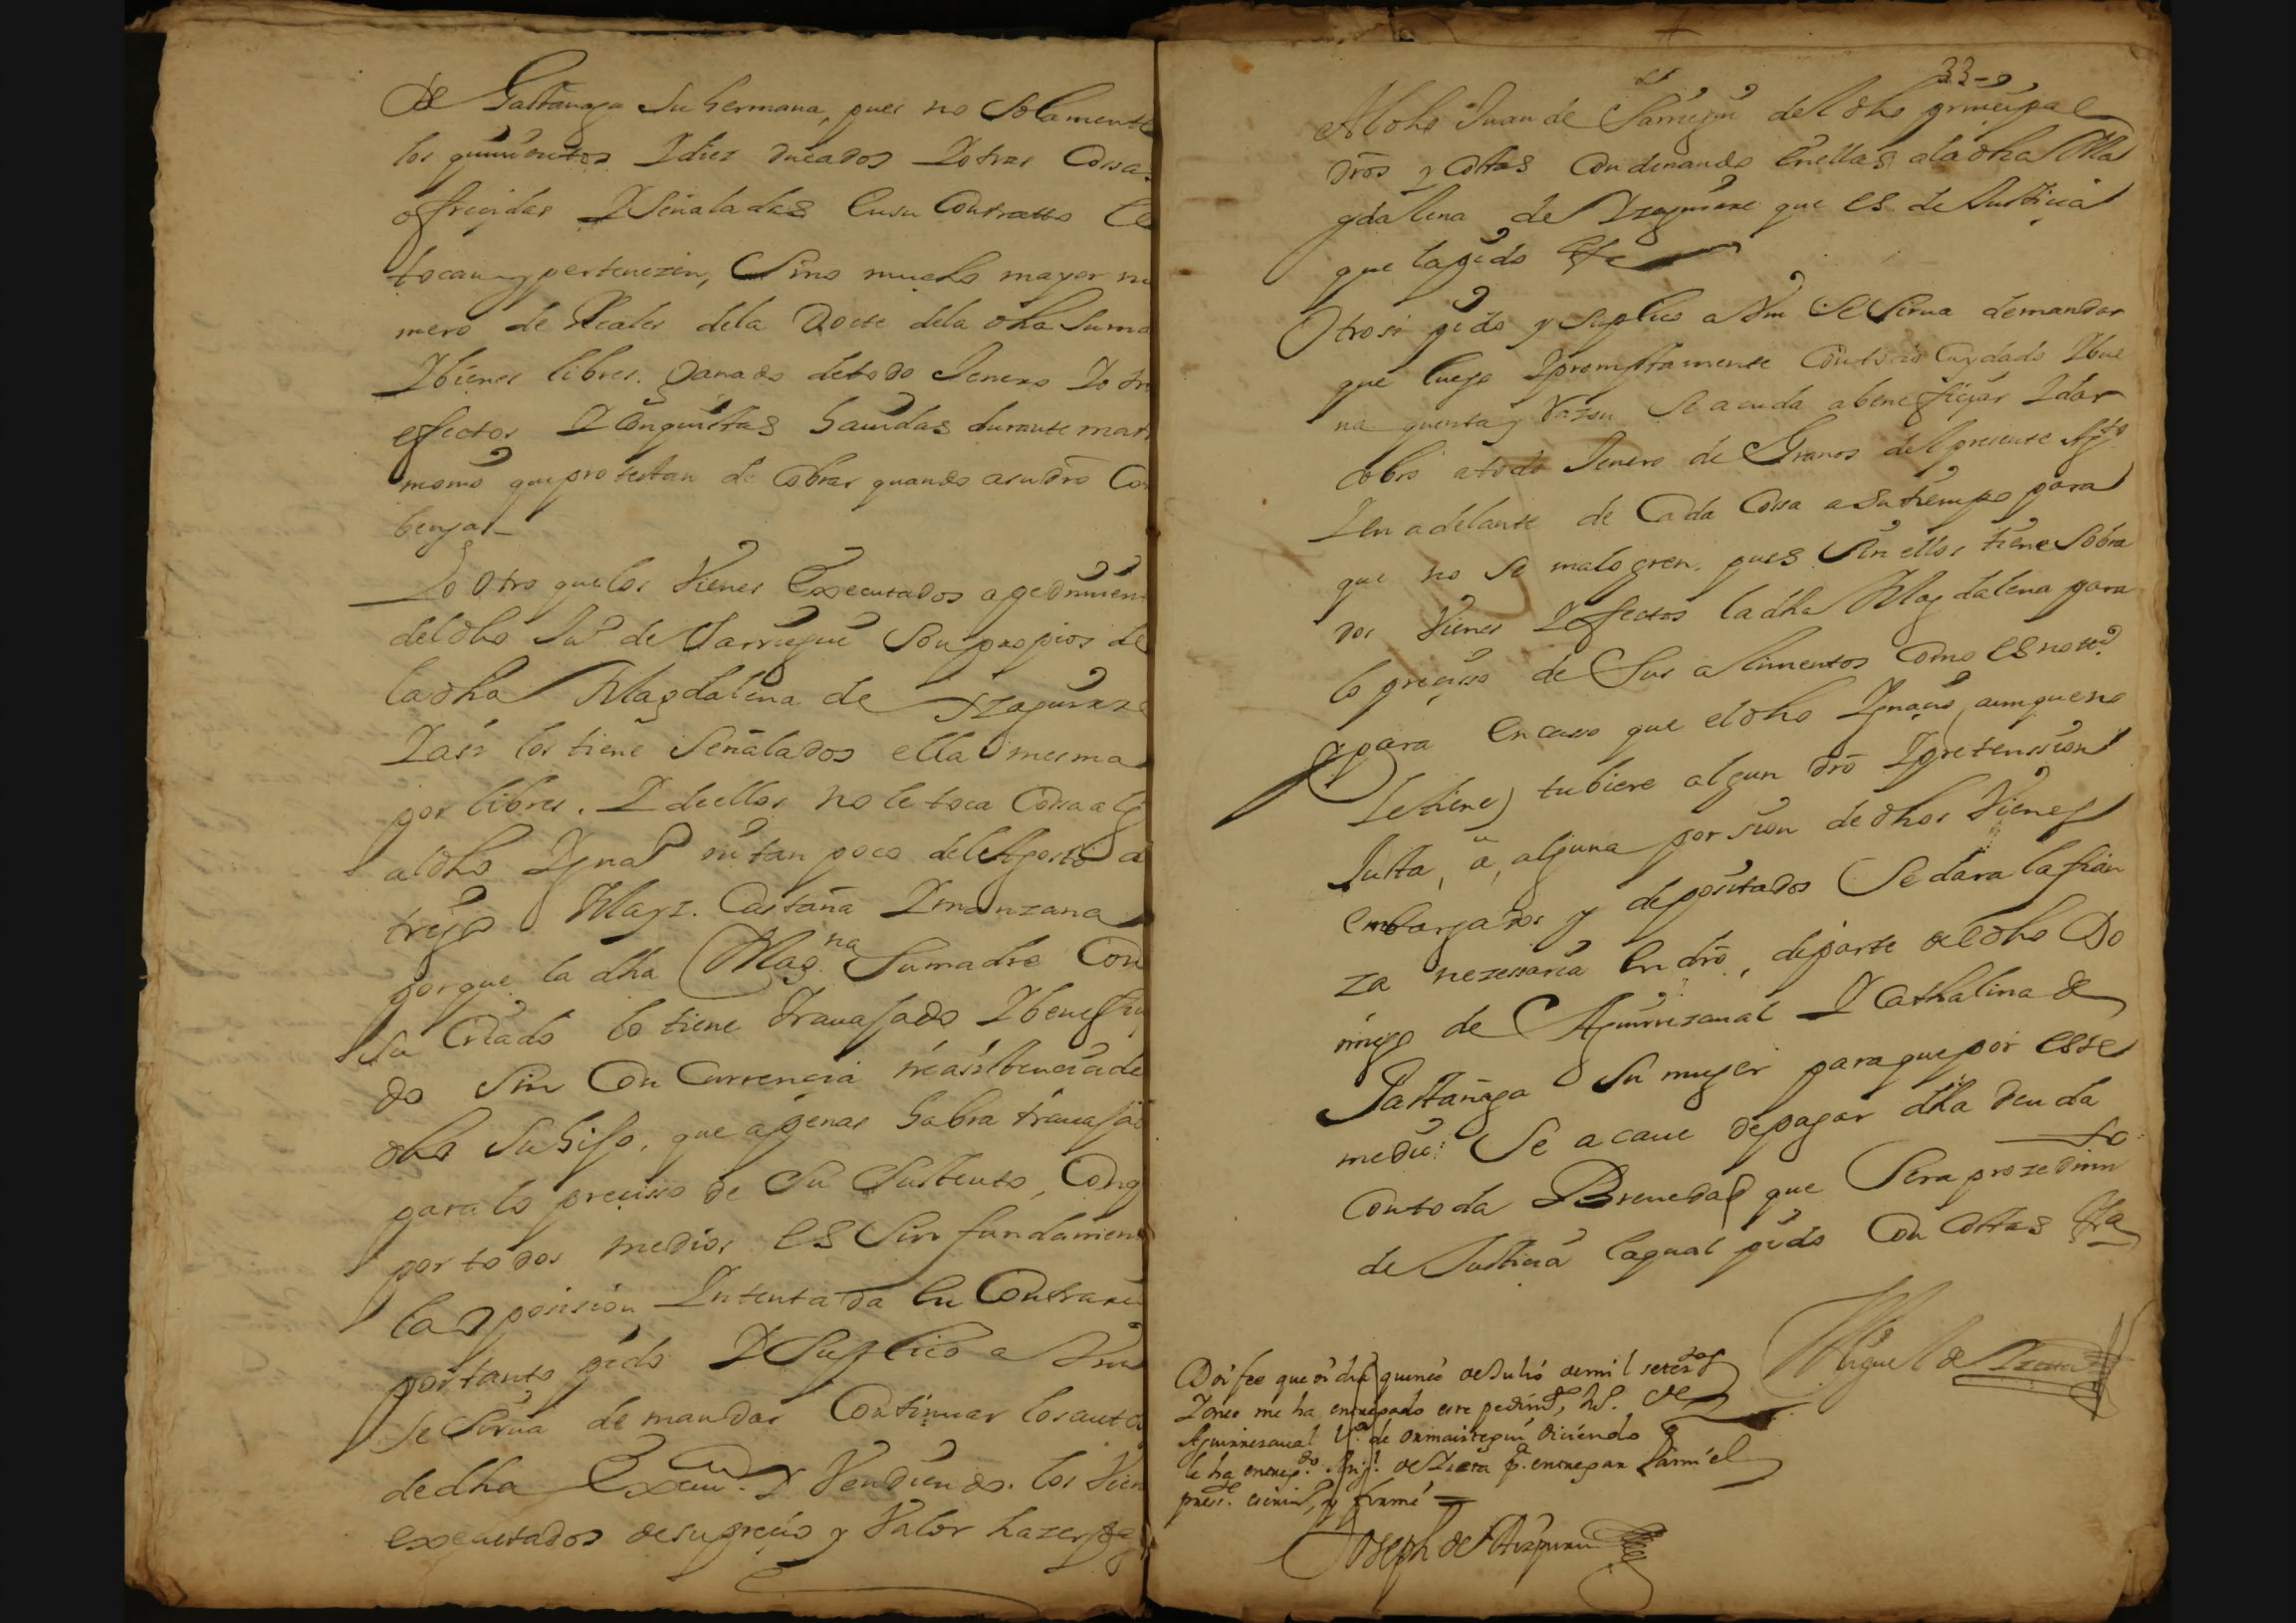 de Gastanaga su hermana, pues no solamente
los quinientos Y diez ducados Y otras Cossas
ofrecidas Y Señaladas en su Contratto le
tocan y pertenezen, Sino mucho mayor nu
mero de Reales de la Docte de la dha suma
Y bienes libres. Ganado de todo Jenero Y otr
efectos Y Conquistas hauidas durante matri
monio que protestan de cobrar quando a su dro Con
benga
Lo otro que los Vienes Executados a pedimien
del dho Ju.º de Sarregui Son propios de
la dha Magdalena de Yzaguirre
Y asi los tiene Señalados ella mesma
por libres. Y de ellos no le toca Cossa alg
al dho Ygnaº ni tan poco del Agosto
trigo Mayz. Castaña Y manzana
porque la dha Mag.na Su madre Con
su Criado lo tiene trauajado Y benefici
do Sin Con Currencia ni asistencia de
dho Su hijo, que apenas habra trauajad
para lo preciso de Su Sustento, Conq
por todos medios es Sin fundamen
la oposicion Yntentada en Contrari
por tanto pido Y Suplico a Vm
se Sirua de mandar Continuar los autos
de dha Execu.on Y Vendiendo. los Vien
executados de su precio y Valor hazer pag
33-
Al dho Juan de Sarregui del dho principal
dros y costas Condenando en ellas a la dha Ma
gdalena de Yzaguirre que es de Justicia
que la pido &c
Otrosi pido y Suplico a Vm Se Sirua de mandar
que luego Y promptamente Con todo Cuydado Y bue
na quenta y Razon Se acuda a beneficiar Y dar
cobro a todo Jenero de Granos del presente Ag.to
Y en adelante de Cada Cossa a su tiempo para
que no Se malogren. pues Sin ellos tiene Sobra
dos Vienes Y efectos la dha Magdalena para
lo preciso de Sus alimentos Como es not.º
Y para en casso que el dho Ygnacio, aunque no
le tiene) tubiere algun dro Y pretenssion
Justa, a, alguna porsion de dhos Vienes
embargados y depositados Se dara la fian
za nezessaria en dro, de parte al dho Do
mingo de Aguirresaual Y Cathalina de
Gastañaga Su muger para que por este
medio: Se acaue de pagar dha deuda
Con toda Breuedad que Sera prozedimi
to
de Justicia la qual pido Con costas &ra
Miguel de Yzeta
Doi fee que oi dia quince de Julio de mil setez.os
Y once me ha entregado este pedim.to de
Aguirresaual V.º de ormaiztegui diciendo q
le ha entreg.do Mig.l de Yzeta p.a entregar
pres.te escriu.º, y firmé =
Joseph de Aizpuru